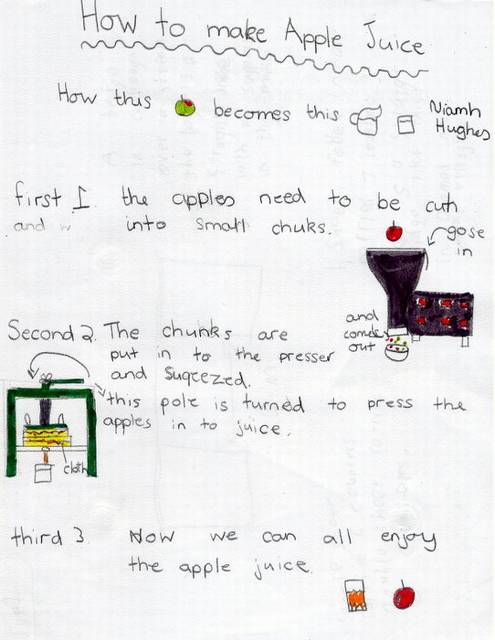 How to make Apple Juice
How thus becomes this
Niamh
Hughes
first 1. the apples need to be cuth
and into small chuks.
gose
in
and
comes
out
Second 2. The chunks are
put in to the presser
and Suqeezed.
this pole is turned to press the
apples in to juice.
cloth
third 3. Now we can all enjoy
the apple juice.